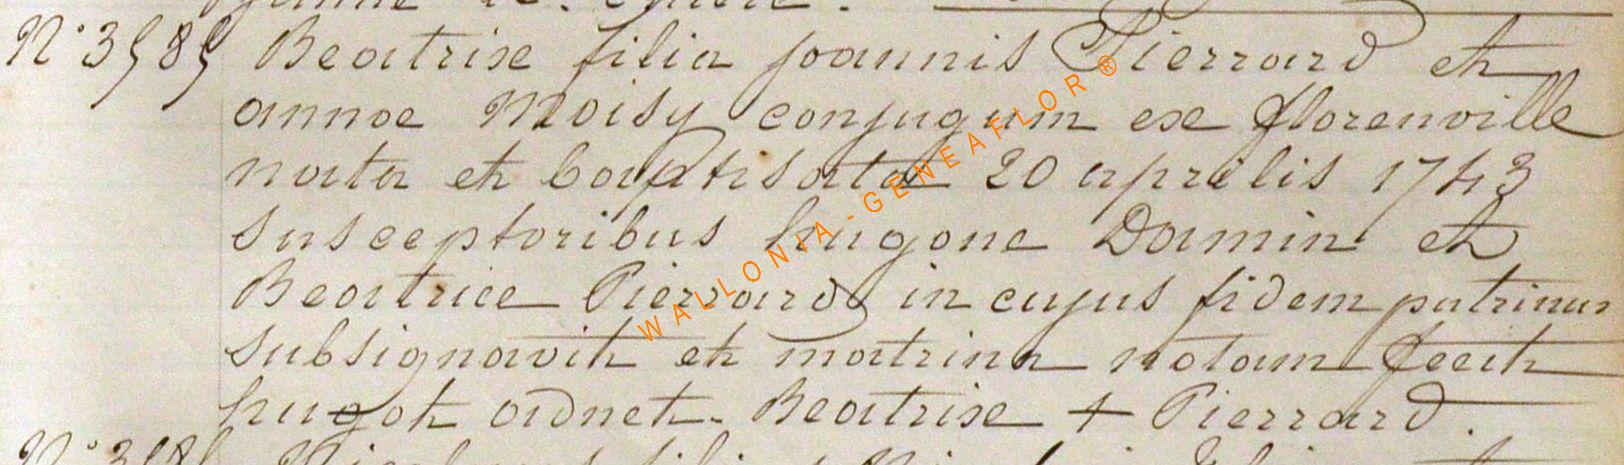 N° 3585 Beatrix filia joannis Pierrard et
annae Moisy conjugum ex florenville
nata et baptisata 20 aprilis 1743
susceptoribus hugone Damin et
Beatrice Pierrard in cujus fidem patrinus
subsignavit et matrina notam fecit
hugot adnet. Beatrise + Pierrard.
N° 358
WALLONIA-GENEAFLOR®